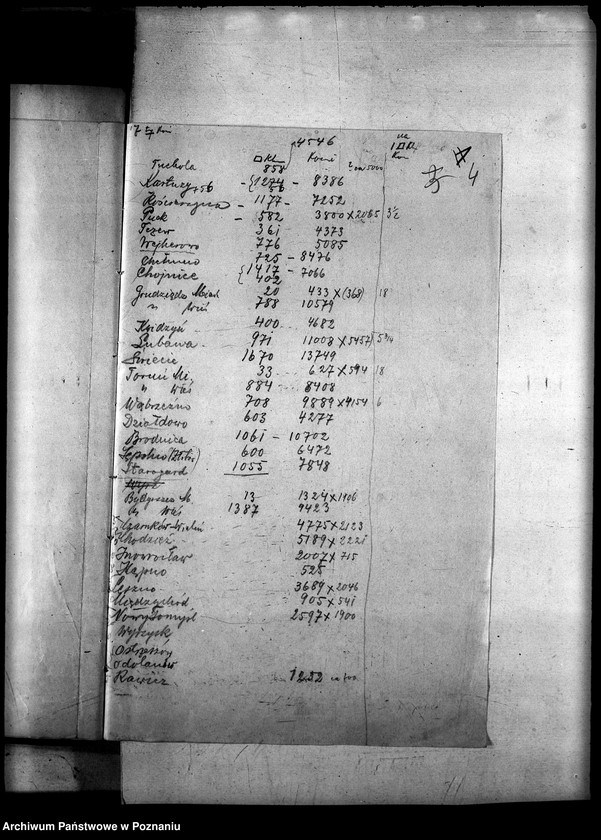 4546
□ Kl Koni na 1 □ Kl Kon
Tuchola 858 4
Kartuzy + 56 - {1274 - 8386
56
Kościerzyna - 1177 - 7252
Puck - 582 3800 x 2085 3½
Tczew 361 4373
Wejherowo 776 5085
Chełmno 725 - 8476
Chojnice {1417 - 7066
402
Grudziądz Miast 20 433 x (368) 18
" Wieś 788 10579
Kwidzyń 400 4682
Lubawa 971 11008 x 5457
Świecie 1670 13749
Toruń Mi. 33 627 x 594 18
" Wieś 884 8408
Wąbrzeźno 708 9889 x 4154 6
Działdowo 603 4277
Brodnica 1061 - 10702
Sępolno 600 6472
Starogard 1055 7848
Bydgoszcz M. 13 1324 x 1906
Wieś 1387 9423
Czarnków-Wieleń 4775 x 2123
Chodzież 5189 x 2221
Inowrocław 2007 x 715
Kępno 525
Leszno 3689 x 2046
Międzychód 905 x 541
Nowy Tomyśl 2597 x 1900
Wyrzysk
Ostrzeszów
Odolanów
Rawicz 1232
Archiwum Państwowe w Poznaniu